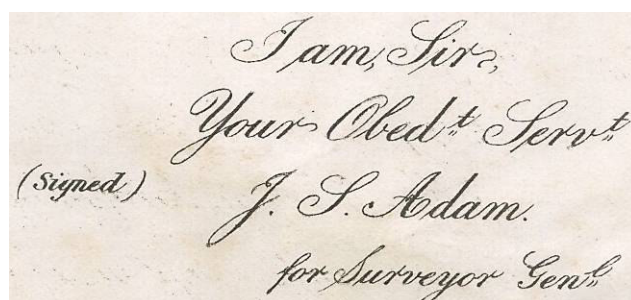 I am, Sir,
Your Obedt Servt
(Signed) J. S. Adam.
for Surveyor Genl